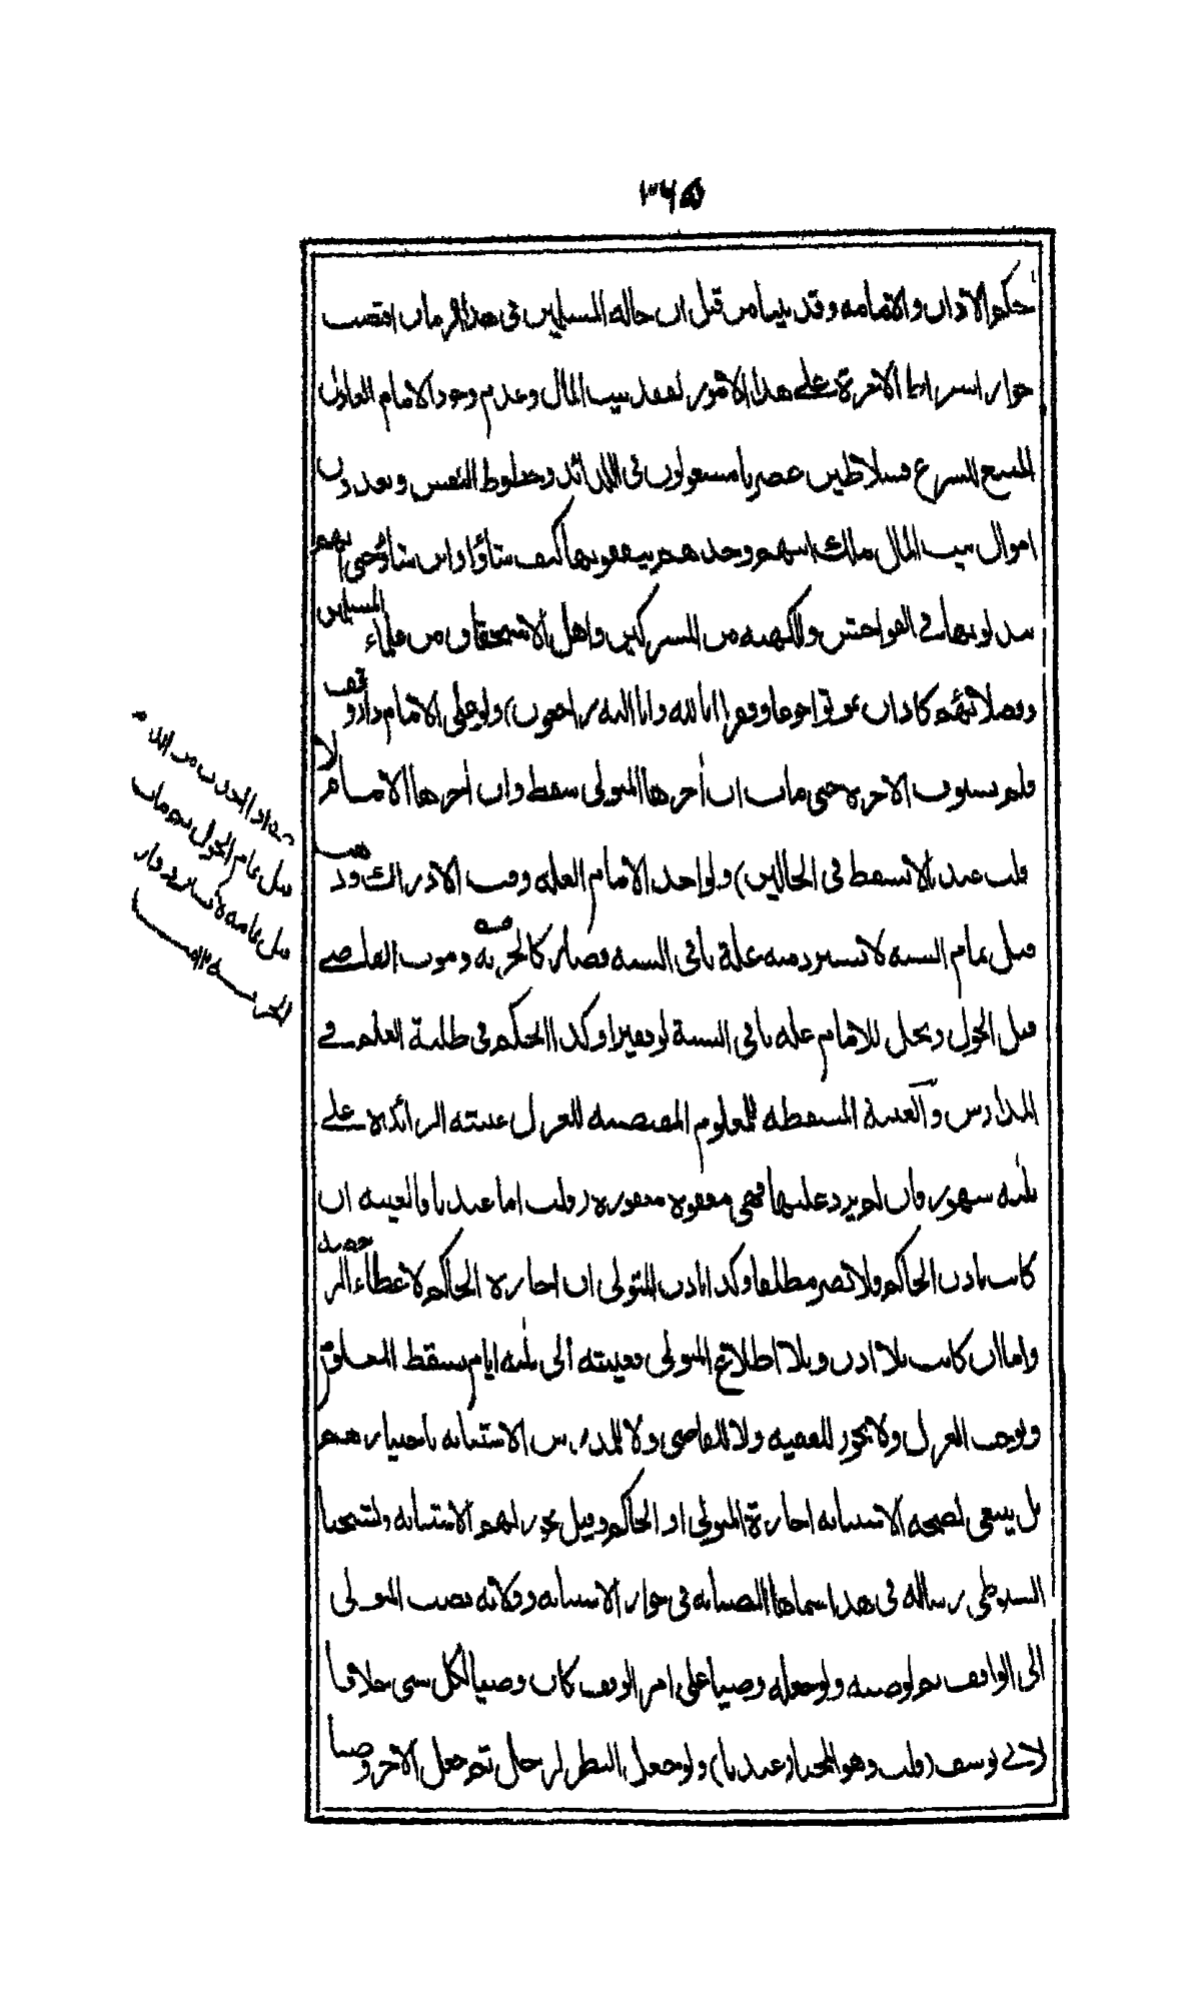 ٣٦٥
حكم الاذان والاقامة وقد بينا من قبل ان حالة المسلمين في هذا الزمان اقتضت
جواز اشتراط الاجرة على هذا الامور لفقد بيت المال وعدم وجود الامام العادل
المتبع للشرع فسلاطين عصرنا مشغولون في اللذائذ وحظوظ النفس ويعدون
اموال بيت المال ملك ابيهم وجدهم ينفقونها كيف شاؤا واين شاؤا حتى انهم
يبذلونها في الفواحش وللكهنة من المشركين واهل الاستحقاق من علماء المسلمين
وفضلائهم كادان يموتوا جوعا وفقرا انا لله وانا اليه راجعون) ولو على الامام دار وقف
فلم يستوف الاجرة حتى مات ان اجرها المتولي سقط وان اجرها الامام لا
قلت عندنا لا تسقط في الحالين) ولو اخذ الامام الغلة وقت الادراك وذهب
قبل تمام السنة لا تسترد منه غلة باقي السنة فصار كالجزية وموت القاضي
قبل الحول ويحل للامام غلة باقي السنة لو فقيرا وكذا الحكم في طلبة العلم في
المدارس والغيبة المسقطة للمعلوم المقتضية للعزل غيبته الزائدة على
ثلثة شهور فان لم يزد عليها فهي معفوة مغفورة (قلت اما عندنا فالغيبة ان
كانت باذن الحاكم فلا تضر مطلقا وكذا باذن المتولي ان اجازه الحاكم لاعطاء الرخصة
واما ان كانت بلا اذن وبلا اطلاع المتولي فغيبته الى ثلثة ايام يسقط المعلوم
ويوجب العزل ولا يجوز للفقيه ولا للقاضي ولا للمدرس الاستنابة باختيارهم
بل ينبغي لصحة الاستنابة اجازة المتولي او الحاكم وقيل يجوز لهم الاستنابة ولشيخنا
السيوطي رسالة في هذا سماها الضبابة في جواز الاستنابة وولاية نصب المتولي
الى الواقف ثم لوصيه ولو جعله وصيا على امر الوقف كان وصيا لكل شئ خلافا
لابي يوسف (قلت وهو المختار عندنا) ولو جعل النظر لرجل ثم جعل الاخر وصيا
اذا اخذت من الذمي
قبل تمام الحول ثم مات
قبل تمامه
الجزية ١٢ منه